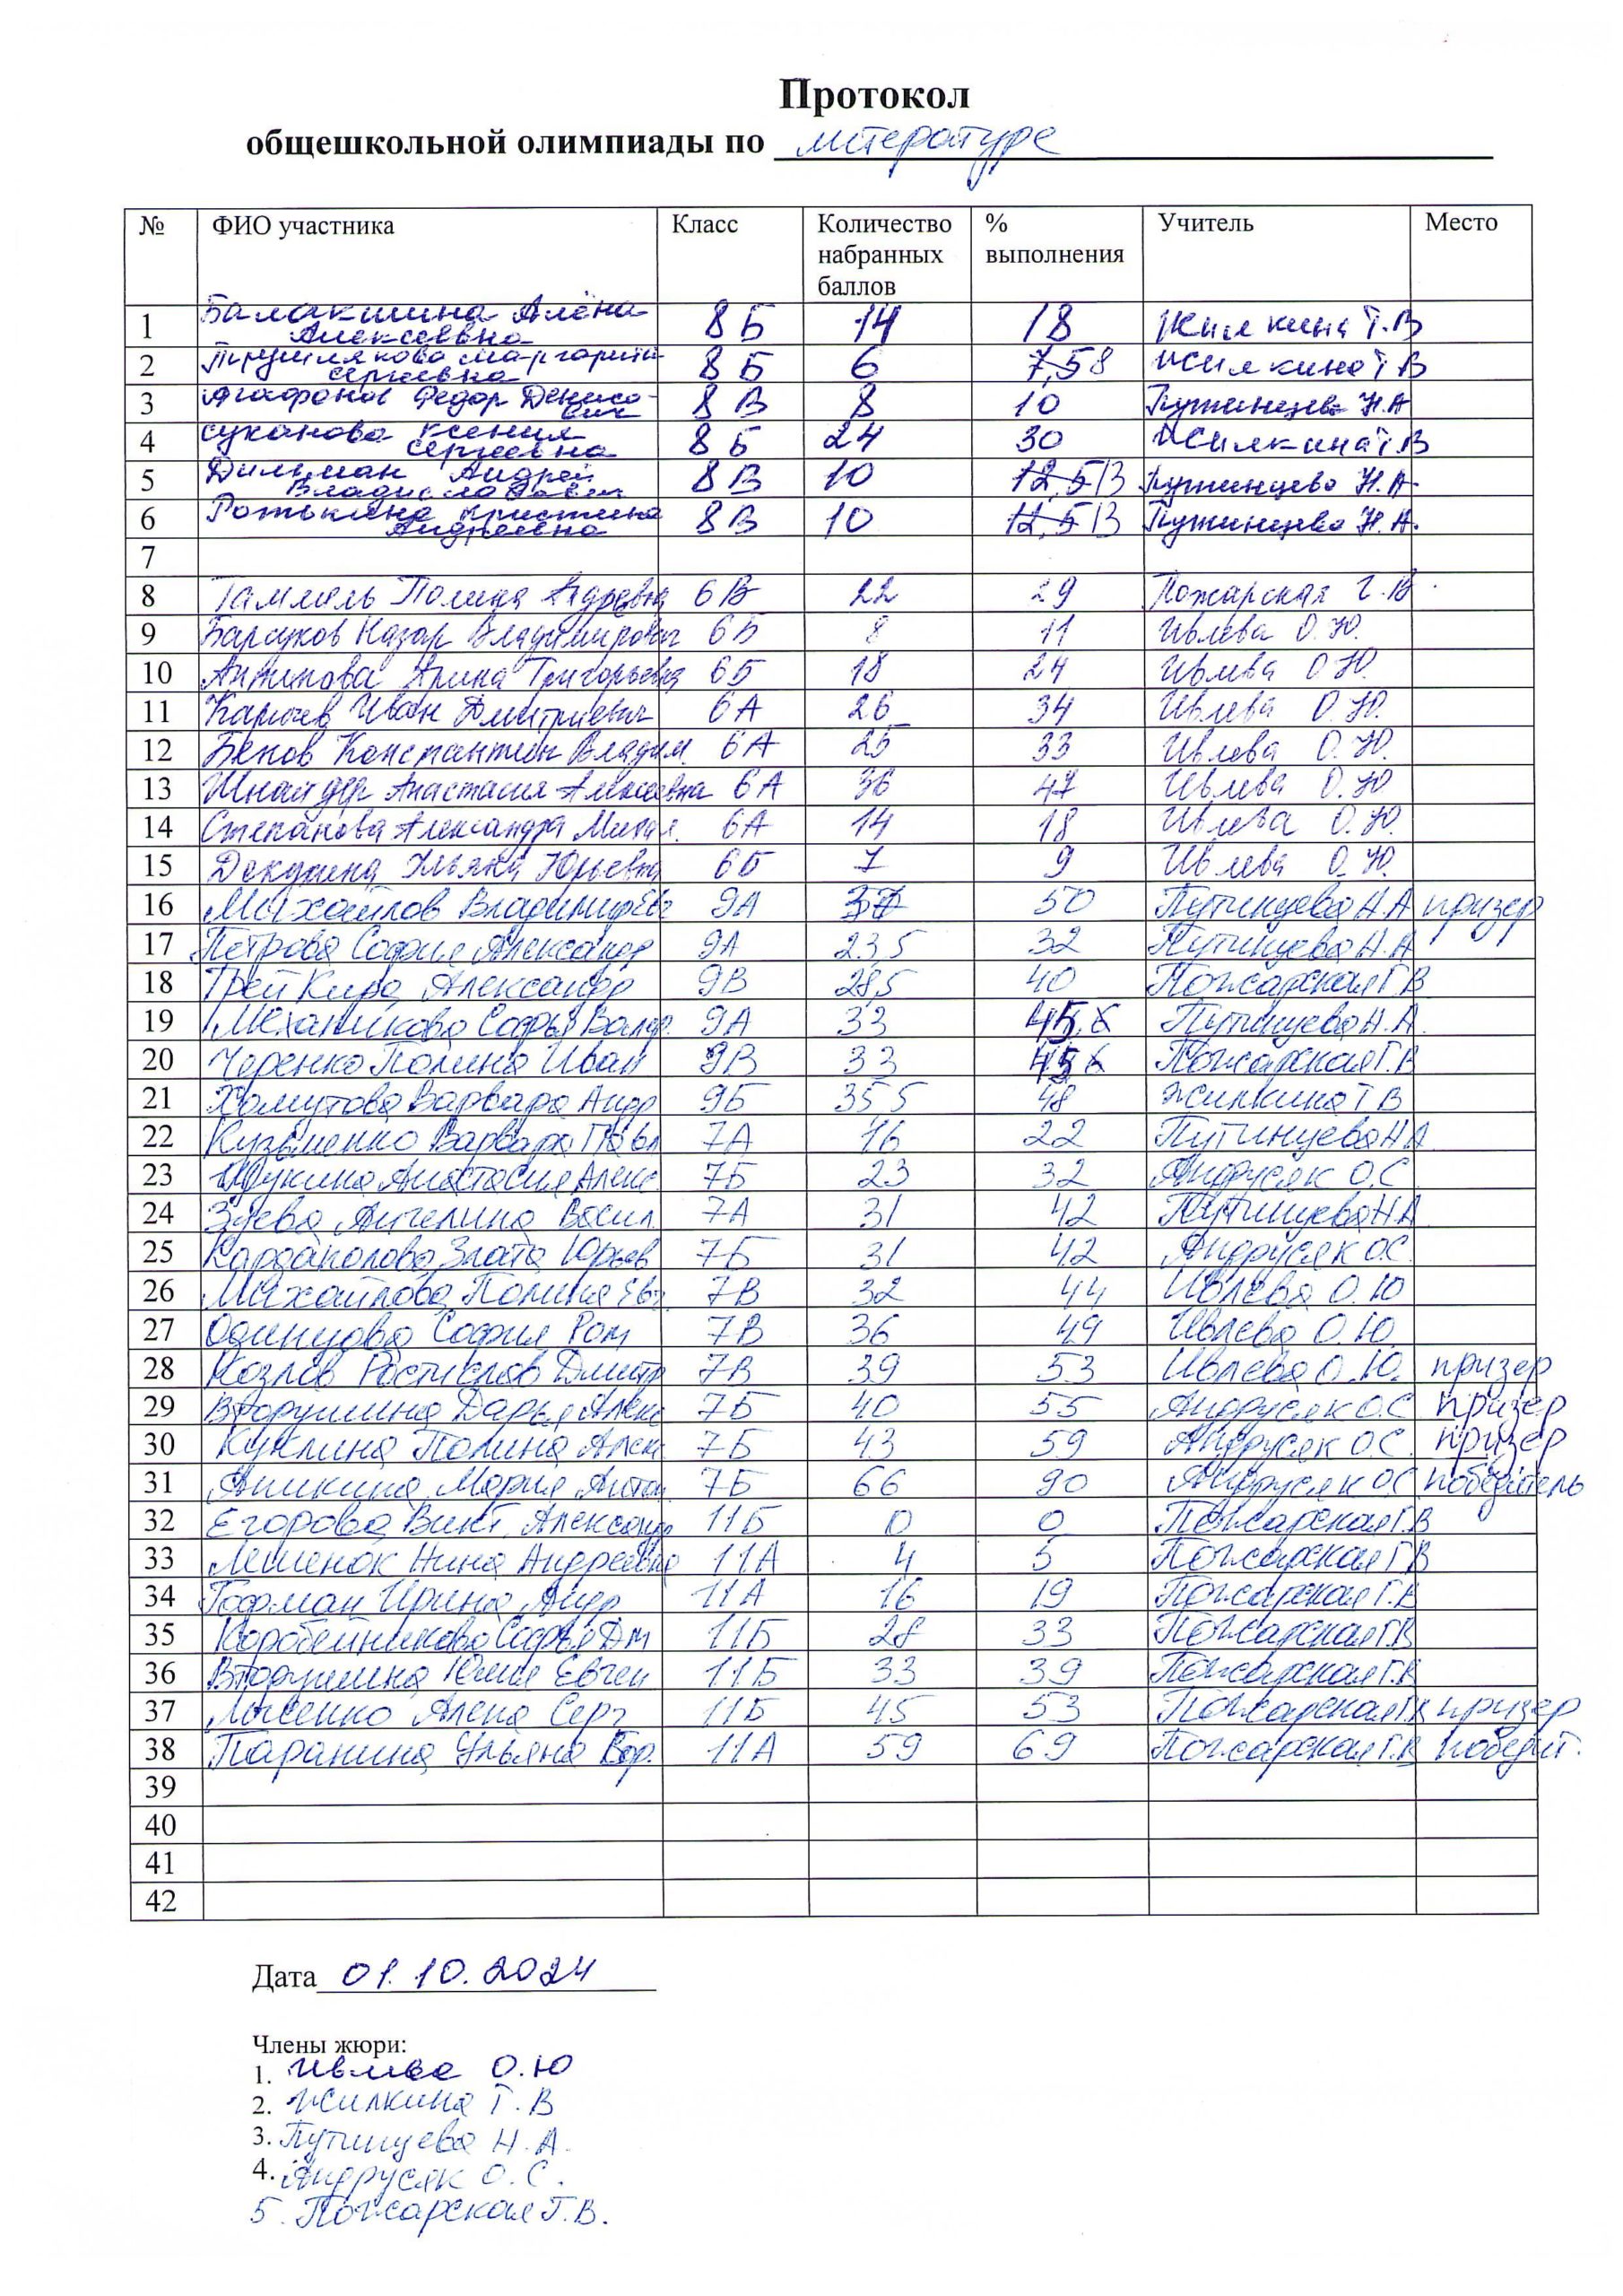 Протокол
общешкольной олимпиады по литературе
№ ФИО участника Класс Количество набранных баллов % выполнения Учитель Место
1 Балакшина Алёна Алексеевна 8 Б 14 18 Жилкина Т. В
2 Маргарита Сергеевна 8 Б 6 7,5 8 Жилкина Т В
3 Агафонов Федор Денисович 8 В 8 10 Путинцева Н. А
4 Суханова Ксения Сергеевна 8 Б 24 30 Жилкина Т В
5 Дильман Андрей Владиславович 8 В 10 12,5 13 Путинцева Н. А.
6 Ротькина Кристина Андреевна 8 В 10 12,5 13 Путинцева Н. А.
7
8 Полина 6 В 22 29 Пожарская Г. В
9 Барсуков Назар Владимирович 6 Б 8 11 Ивлева О. Ю.
10 Антипова Арина Григорьевна 6 Б 18 24 Ивлева О Ю.
11 Иван Дмитриевич 6 А 26 34 Ивлева О. Ю.
12 Константин Владим. 6 А 25 33 Ивлева О. Ю.
13 Шнайдер Анастасия Алексеевна 6 А 36 47 Ивлева О. Ю
14 Степанова Александра Михай. 6А 14 18 Ивлева О. Ю.
15 Ульяна Юрьевна 6 Б 7 9 Ивлева О. Ю.
16 Михайлов Владимир Евг 9А 37 50 Путинцева Н. А призер
17 Петрова София Александр 9А 23,5 32 Путинцева Н. А
18 Грей Кира Александр 9В 28,5 40 Пожарская Г В
19 Механикова Софья Валер. 9А 33 45 Путинцева Н. А.
20 Черенко Полина Иван 9В 33 45 Пожарская Г. В
21 Хомутова Варвара Андр 9Б 35 5 48 Жилкина Т В
22 Кузьменко Варвара Павл 7А 16 22 Путинцева Н А
23 Щукина Анастасия Алекс. 7Б 23 32 Андрусяк О. С
24 Зуева Ангелина Васил. 7А 31 42 Путинцева Н А
25 Кардаполова Злата Юрьев 7Б 31 42 Андрусяк О. С.
26 Михайлова Полина Евг 7В 32 44 Ивлева О. Ю
27 Одинцова София Ром 7В 36 49 Ивлева О. Ю
28 Козлов Ростислав Дмитр 7В 39 53 Ивлева О. Ю. призер
29 Вторушина Дарья Алекс 7Б 40 55 Андрусяк О. С призер
30 Куклина Полина Алекс 7Б 43 59 Андрусяк О. С. призер
31 Аникина Мария Антон 7Б 66 90 Андрусяк О С победитель
32 Егорова Викт. Александр 11Б 0 0 Пожарская Г. В
33 Лешенок Нина Андреевна 11А 4 5 Пожарская Г В
34 Гофман Ирина Андр 11А 16 19 Пожарская Г. В
35 Коробейникова Софья Дм 11Б 28 33 Пожарская Г. В
36 Вторушина Юлия Евген 11Б 33 39 Пожарская Г. В
37 Лысенко Алена Серг 11Б 45 53 Пожарская Г. В призер
38 Паранина Ульяна Вор. 11А 59 69 Пожарская Г. В победит.
39
40
41
42
Дата 01.10.2024
Члены жюри:
1. Ивлева О. Ю
2. Жилкина Т. В
3. Путинцева Н. А.
4. Андрусяк О. С.
5. Пожарская Г. В.